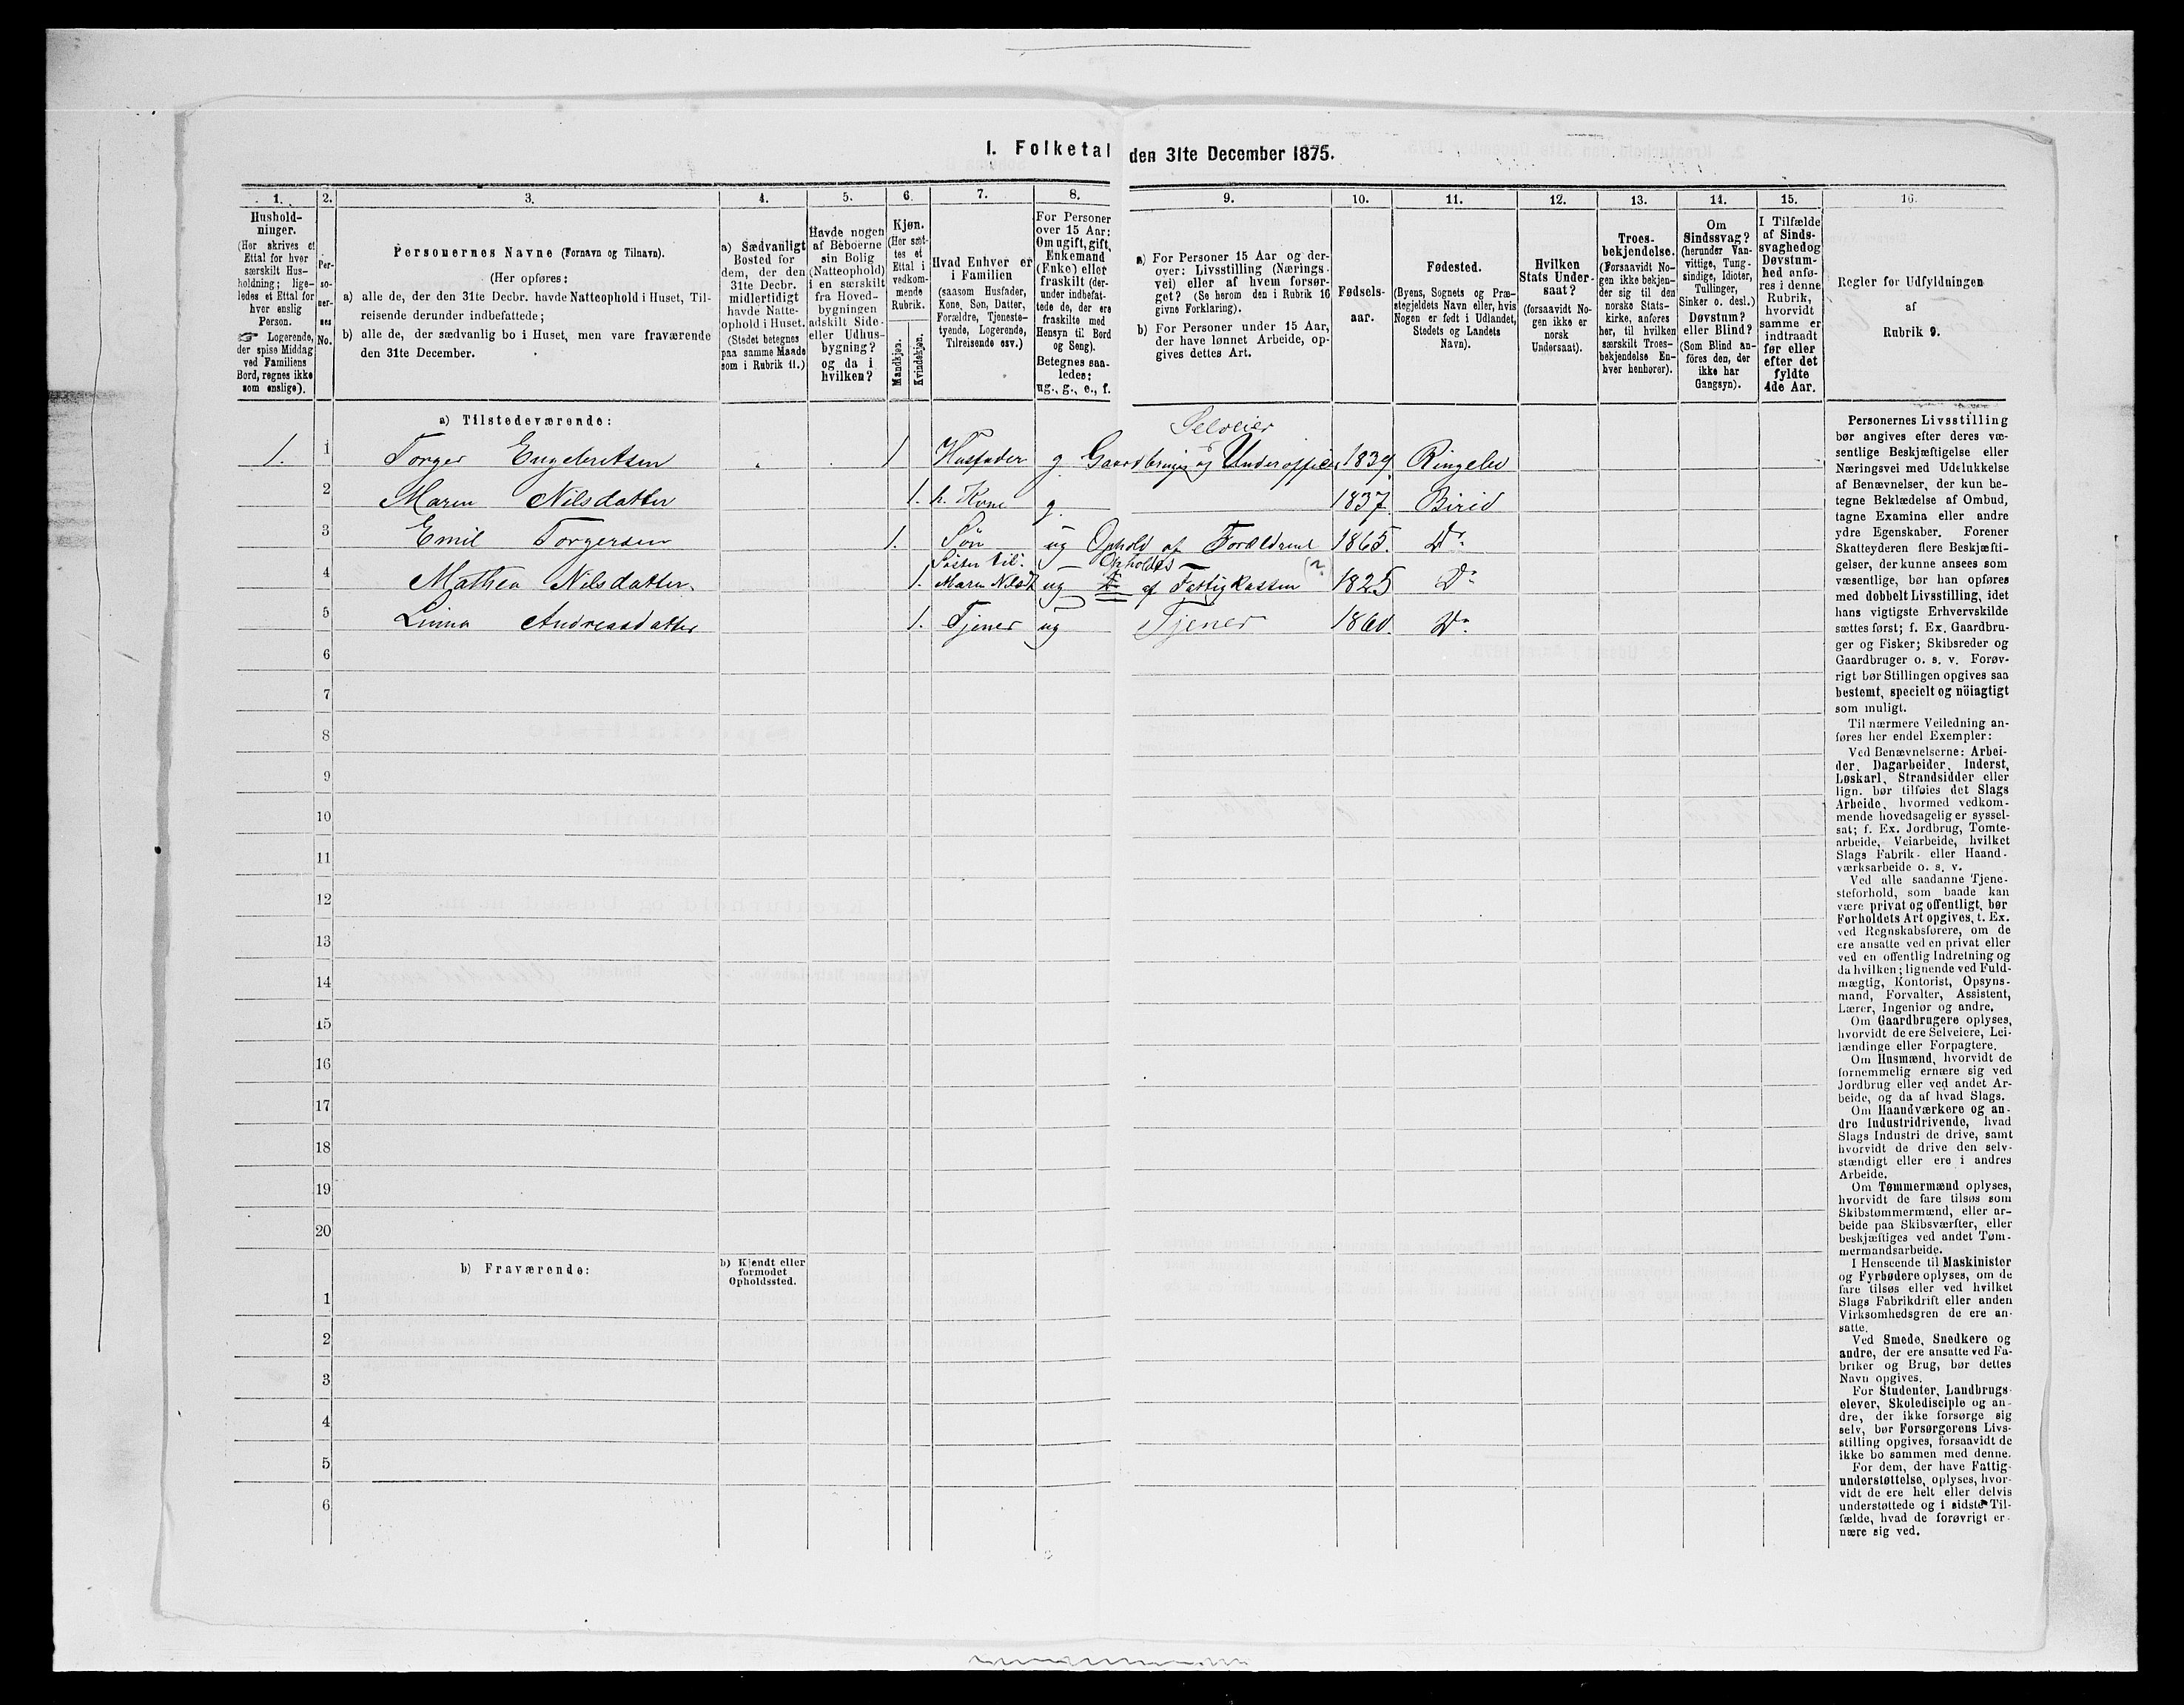 I. Folketal den 31te December 1875.
1. 2. 3. 4. 5. 6. 7. 8. 9. 10. 11. 12. 13. 14. 15. 16.
Hushold-
ninger.
(Her skrives et
Ettal for hver
særskilt Hus-
holdning; lige-
ledes et Ettal for
hver enslig
Person.
☞ Logerende,
der spise Middag
ved Familiens
Bord, regnes ikke
som enslige).
Per-
so-
ner-
nes
No.
Personernes Navne (Fornavn og Tilnavn).
(Her opføres:
a) alle de, der den 31te Decbr. havde Natteophold i Huset, Til-
reisende derunder indbefattede;
b) alle de, der sædvanlig bo i Huset, men vare fraværende
den 31te December.
a) Sædvanligt
Bosted for
dem, der den
31te Decbr.
midlertidigt
havde Natte-
ophold i Huset.
(Stedet betegnes
paa samme Maade
som i Rubrik 11.)
Havde nogen
af Beboerne
sin Bolig
(Natteophold)
i en særskilt
fra Hoved-
bygningen
adskilt Side-
eller Udhus-
bygning?
og da i
hvilken?
Kjøn.
(Her sæt-
tes et
Ettal i
vedkom-
mende
Rubrik.
Mandkjøn.
Kvindekjøn.
Hvad Enhver er
i Familien
(saasom Husfader,
Kone, Søn, Datter,
Forældre, Tjeneste-
tyende, Logerende,
Tilreisende osv.)
For Personer
over 15 Aar:
Om ugift, gift,
Enkemand
(Enke) eller
fraskilt (der-
under indbefat-
tede de, der ere
fraskilte med
Hensyn til Bord
og Seng).
Betegnes saa-
ledes:
ug., g., e., f.
a) For Personer 15 Aar og der-
over: Livsstilling (Nærings-
vei) eller af hvem forsør-
get? (Se herom den i Rubrik 16
givne Forklaring).
b) For Personer under 15 Aar,
der have lønnet Arbeide, op-
gives dettes Art.
Fødsels-
aar.
Fødested.
(Byens, Sognets og Præ-
stegjeldets Navn eller, hvis
Nogen er født i Udlandet,
Stedets og Landets
Navn).
Hvilken
Stats Under-
saat?
(forsaavidt No-
gen ikke er
norsk
Undersaat).
Troes-
bekjendelse.
(Forsaavidt No-
gen ikke bekjen-
der sig til den
norske Stats-
kirke, anføres
her, til hvilken
særskilt Troes-
bekjendelse En-
hver henhører).
Om
Sindssvag?
(herunder Van-
vittige, Tung-
sindige, Idioter,
Tullinger,
Sinker o. desl.)
Døvstum?
eller Blind?
(Som Blind an-
føres den, der
ikke har
Gangsyn).
I Tilfælde
af Sinds-
svaghed og
Døvstum-
hed anfø-
res i denne
Rubrik,
hvorvidt
samme er
indtraadt
før eller
efter det
fyldte
4de Aar.
Regler for Udfyldningen
af
Rubrik 9.
a) Tilstedeværende:
Selveier
1. 1 Torger Engebretsen 1 Husfader g. Gaardbruger og Underofficer 1839 Ringebo
2 Maren Nilsdatter 1. h. Kone g. 1837. Birid
3 Emil Torgersen 1. Søn ug Ophold af Forældrene 1865. Do
Søster til Opholdes
4 Mathea Nilsdatter 1. Maren Nilsd ug af Fattigkassen (?) 1825 Do
5 Linna Andreasdatter 1. Tjener ug Tjener 1860. Do
6
7
8
9
10
11
12
13
14
15
16
17
18
19
20
b) Fraværende:
b) Kjendt eller
formodet
Opholdssted.
1
2
3
4
5
6
Personernes Livsstilling
bør angives efter deres væ-
sentlige Beskjæftigelse eller
Næringsvei med Udelukkelse
af Benævnelser, der kun be-
tegne Beklædelse af Ombud,
tagne Examina eller andre
ydre Egenskaber. Forener
Skatteyderen flere Beskjæfti-
gelser, der kunne ansees som
væsentlige, bør han opføres
med dobbelt Livsstilling, idet
hans vigtigste Erhvervskilde
sættes først; f. Ex. Gaardbru-
ger og Fisker; Skibsreder og
Gaardbruger o. s. v. Forøv-
rigt bør Stillingen opgives saa
bestemt, specielt og nöiagtigt
som muligt.
Til nærmere Veiledning an-
føres her endel Exempler:
Ved Benævnelserne: Arbei-
der, Dagarbeider, Inderst,
Løskarl, Strandsidder eller
lign. bør tilføies det Slags
Arbeide, hvormed vedkom-
mende hovedsagelig er syssel-
sat; f. Ex. Jordbrug, Tomte-
arbeide, Veiarbeide, hvilket
Slags Fabrik- eller Haand-
værksarbeide o. s. v.
Ved alle saadanne Tjene-
steforhold, som baade kan
være privat og offentligt, bør
Forholdets Art opgives, t. Ex.
ved Regnskabsførere, om de
ere ansatte ved en privat eller
ved en offentlig Indretning og
da hvilken; lignende ved Fuld-
mægtig, Kontorist, Opsyns-
mand, Forvalter, Assistent,
Lærer, Ingeniør og andre.
Om Gaardbrugere oplyses,
hvorvidt de ere Selveiere, Lei-
lændinge eller Forpagtere.
Om Husmænd, hvorvidt de
fornemmelig ernære sig ved
Jordbrug eller ved andet Ar-
beide, og da af hvad Slags.
Om Haandværkere og an-
dre Industridrivende, hvad
Slags Industri de drive, samt
hvorvidt de drive den selv-
stændigt eller ere i andres
Arbeide.
Om Tømmermænd oplyses,
hvorvidt de fare tilsøs som
Skibstømmermænd, eller ar-
beide paa Skibsværfter, eller
beskjæftiges ved andet Tøm-
mermandsarbeide.
I Henseende til Maskinister
og Fyrbødere oplyses, om de
fare tilsøs eller ved hvilket
Slags Fabrikdrift eller anden
Virksomhedsgren de ere an-
satte.
Ved Smede, Snedkere og
andre, der ere ansatte ved Fa-
briker og Brug, bør dettes
Navn opgives.
For Studenter, Landbrugs-
elever, Skoledisciple og an-
dre, der ikke forsørge sig
selv, bør Forsørgerens Livs-
stilling opgives, forsaavidt de
ikke bo sammen med denne.
For dem, der have Fattig-
understøttelse, oplyses, hvor-
vidt de ere helt eller delvis
understøttede og i sidste Til-
fælde, hvad de forøvrigt er-
nære sig ved.